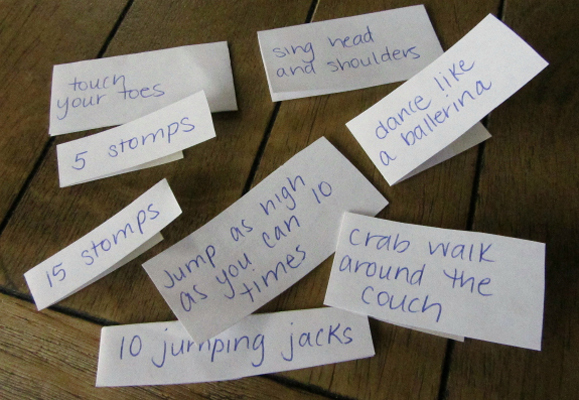 touch
your toes
sing head
and shoulders
dance like
a ballerina
5 stomps
15 stomps
Jump as high
as you can 10
times
crab walk
around the
couch
10 jumping jacks